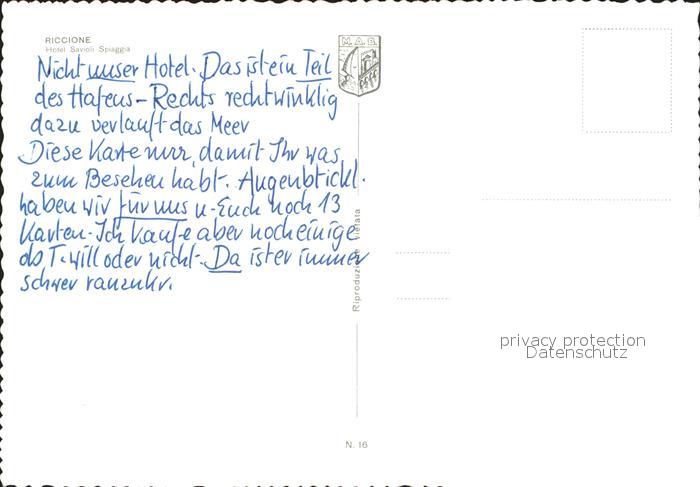 RICCIONE
Hotel Savioli Spiaggia
M.A.B.
Nicht unser Hotel. Das ist ein Teil
des Hafens - Rechts rechtwinklig
dazu verläuft das Meer
Diese Karte nur, damit Ihr was
zum Besehen habt. Augenblickl.
haben wir für uns u. Euch noch 13
Karten. Ich kaufe aber noch einige
ob T. will oder nicht. Da ist er immer
schwer ranzukr.
Riproduzione Vietata
privacy protection
Datenschutz
N. 16